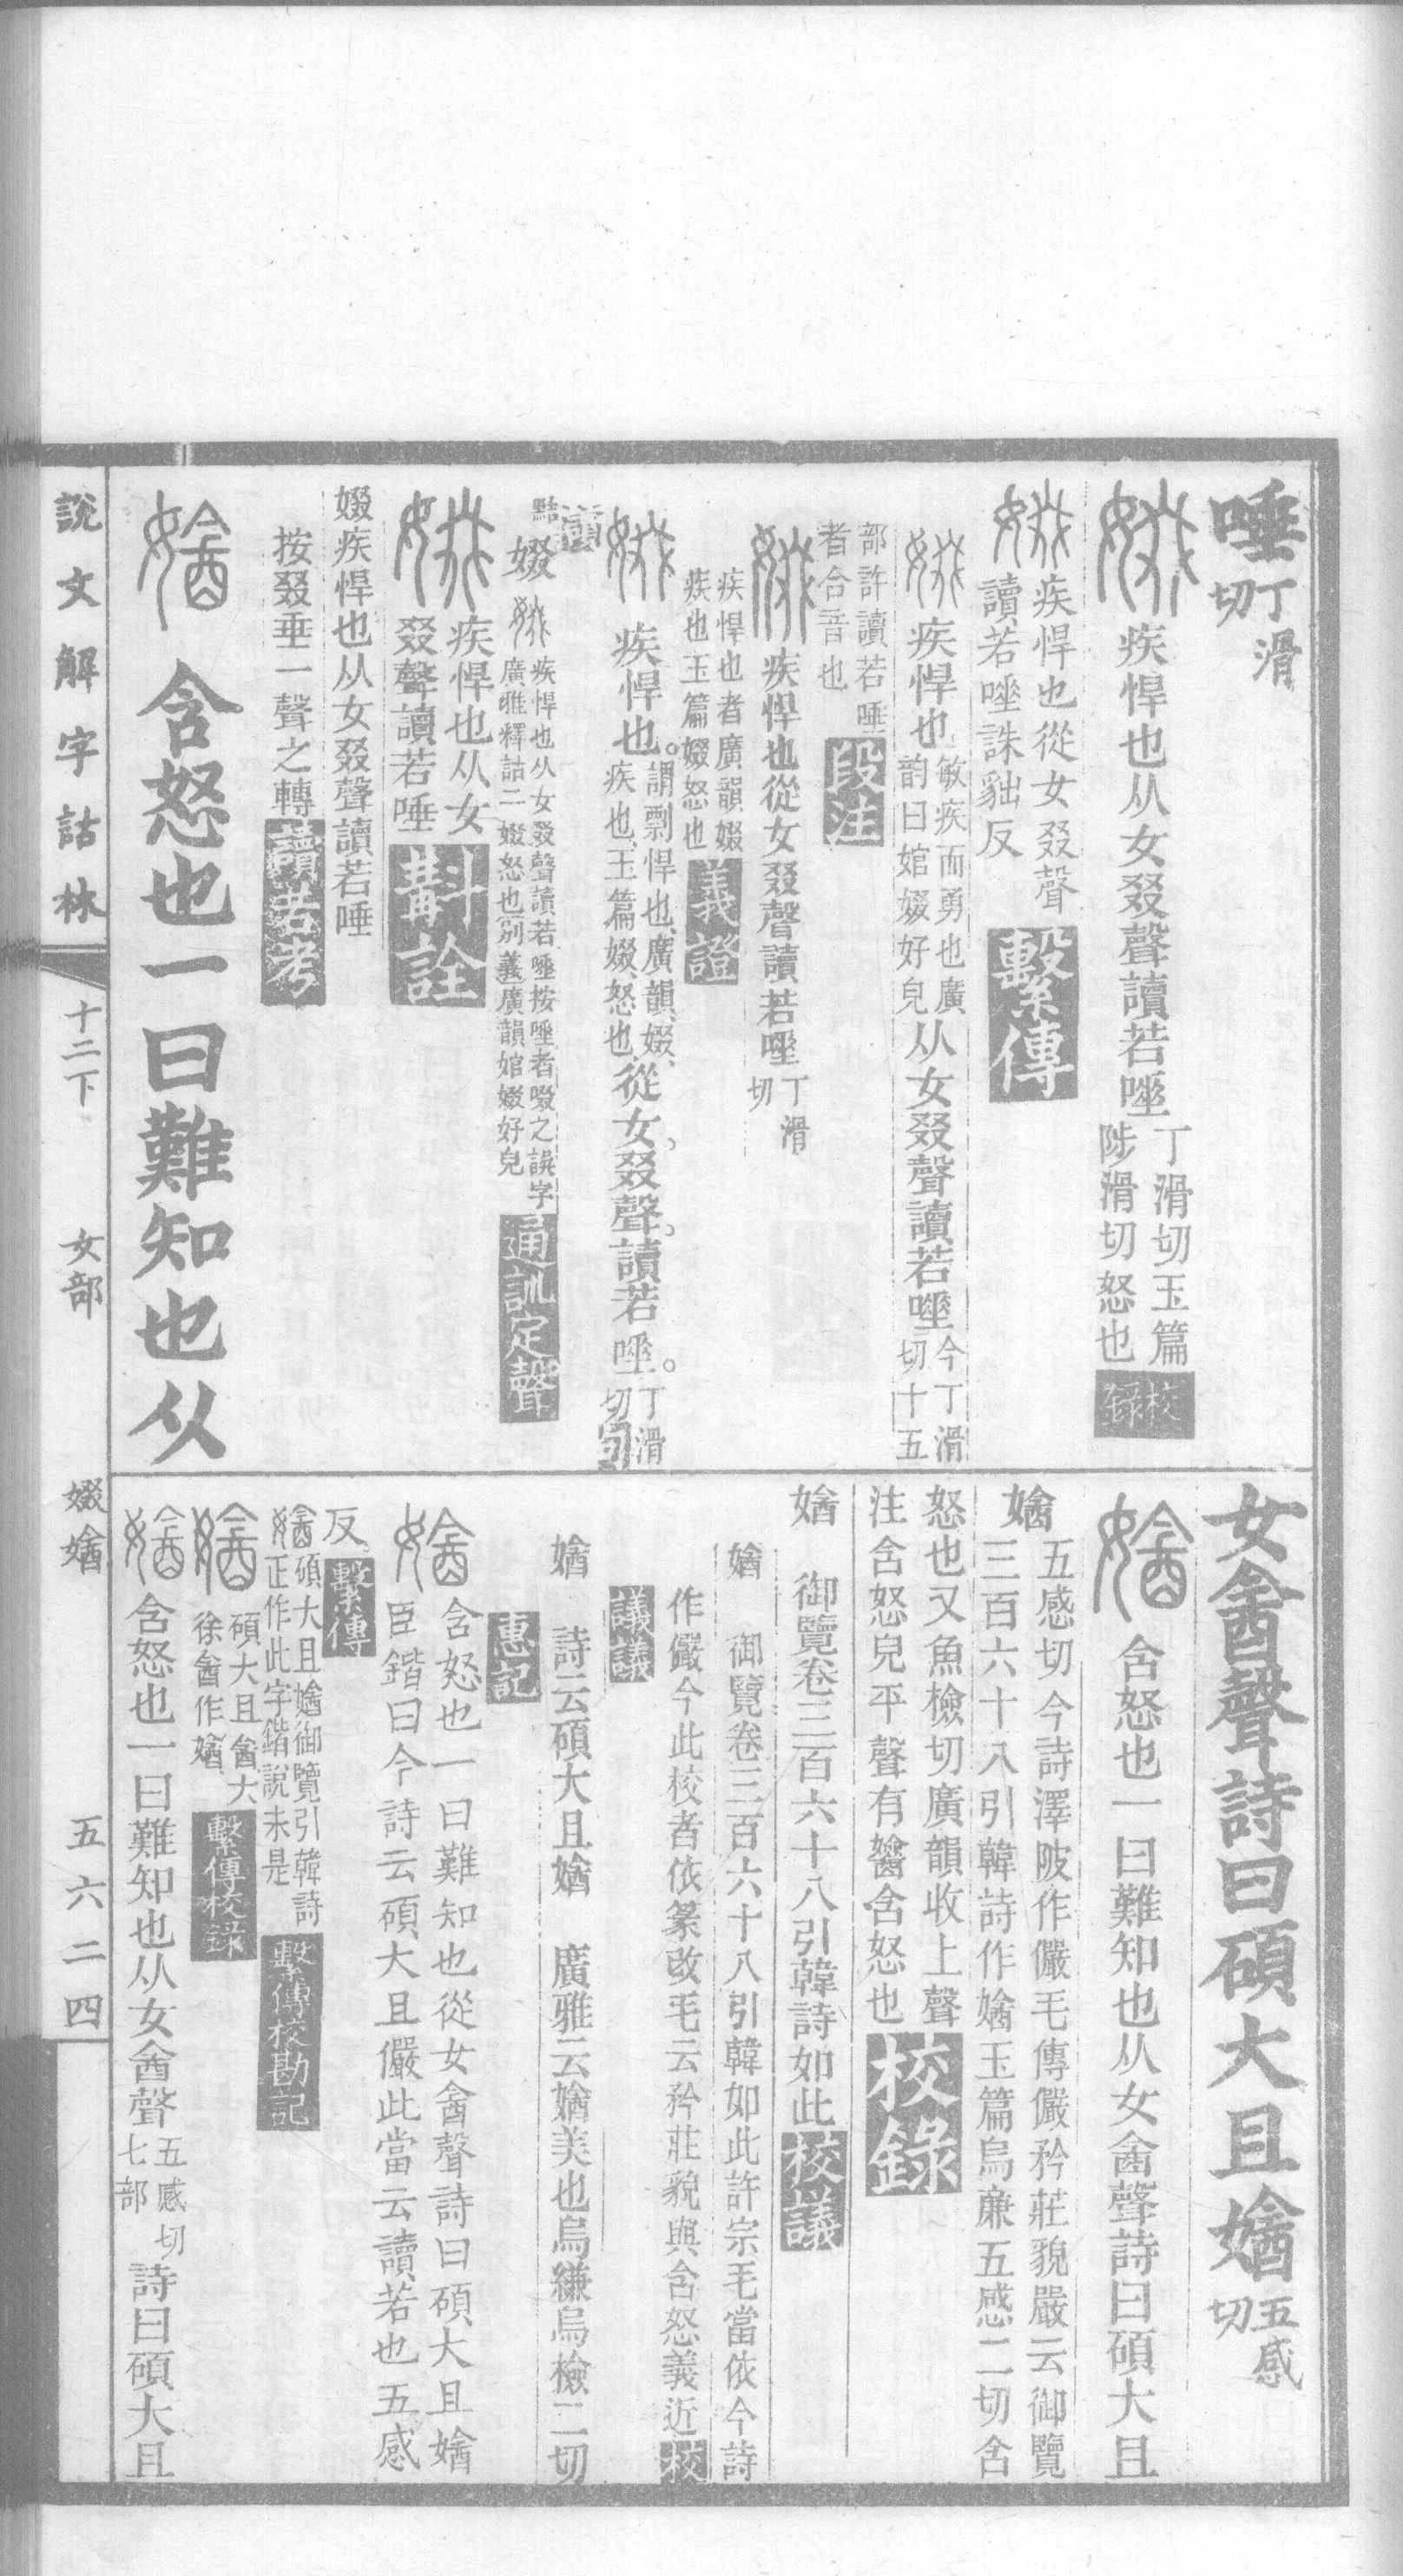 唾丁滑切
娺疾悍也从女叕聲讀若唾丁滑切玉篇陟滑切怒也校録
娺疾悍也從女叕聲讀若唾誅貀反繫傳
娺疾悍也敏疾而勇也廣韵曰婠娺好皃从女叕聲讀若唾今丁滑切十五
部許讀若唾者合音也段注
娺疾悍也從女叕聲讀若唾丁滑切
疾悍也者廣韻娺疾也玉篇娺怒也義證
娺疾悍也。謂剽悍也廣韻、娺、疾也、玉篇娺、怒也、從女、叕聲。讀若唾。丁滑切句
讀
娺疾悍也从女叕聲讀若唾按唾者啜之誤字廣雅釋詁二娺怒也別義廣韻婠娺好皃通訓定聲
娺疾悍也从女叕聲讀若唾斠詮
娺疾悍也从女叕聲讀若唾
按叕垂一聲之轉讀若考
嬒含怒也一曰難知也从
女酓聲詩曰碩大且㜝五感切
㜝含怒也一曰難知也从女酓聲詩曰碩大且
㜝五感切今詩澤陂作儼毛傳儼矜莊貌嚴云御覽三百六十八引韓詩作㜝玉篇烏廉五感二切含
怒也又魚檢切廣韻收上聲注含怒皃平聲有㜝含怒也校錄
㜝御覽卷三百六十八引韓詩如此校議
㜝御覽卷三百六十八引韓如此許宗毛當依今詩
作儼今此校者依篆改毛云矜莊貌與含怒義近校
議議
㜝詩云碩大且㜝廣雅云㜝美也烏縑烏檢二切
惠記
㜝含怒也一曰難知也從女酓聲詩曰碩大且㜝
臣鍇曰今詩云碩大且儼此當云讀若也五感
反繫傳
㜝碩大且㜝御覽引韓詩正作此字鍇說未是繫傳校勘記
㜝碩大且酓大徐酓作㜝繫傳校錄
㜝含怒也一曰難知也从女酓聲五感切七部詩曰碩大且
說文解字詁林 十二下 女部 娺㜝 五六二四